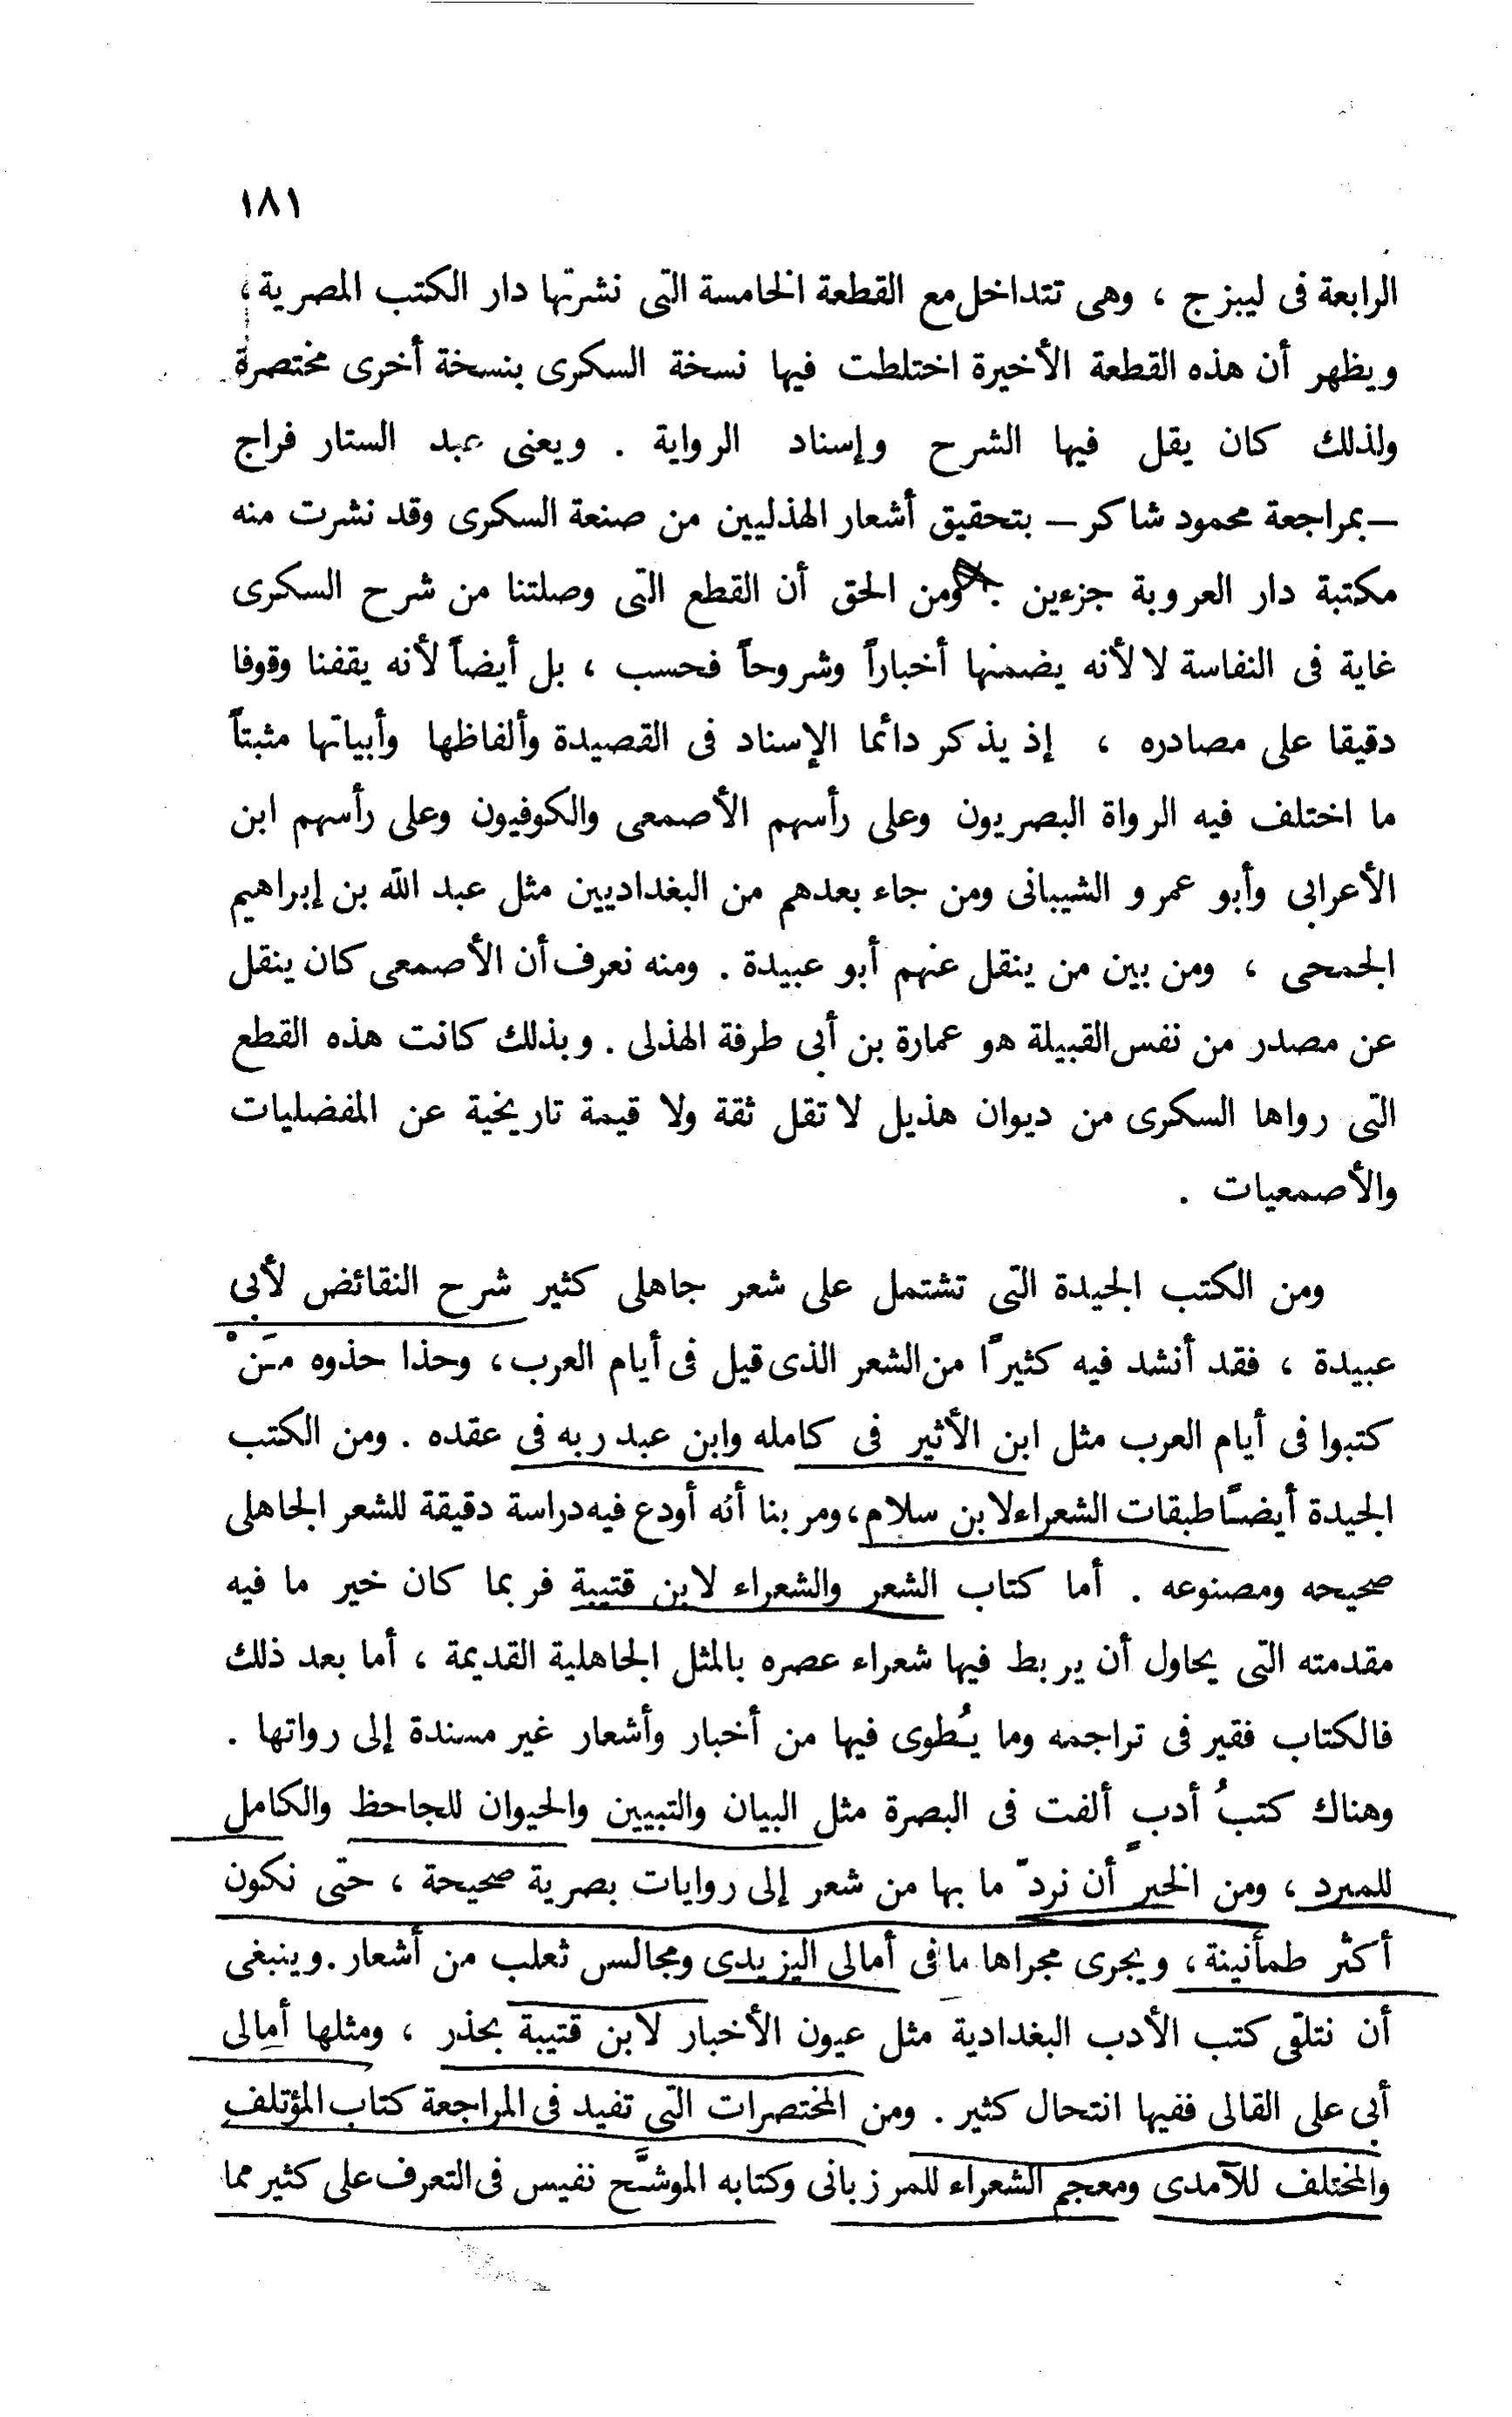 ١٨١
الرابعة فى ليبزج ، وهى تتداخل مع القطعة الخامسة التى نشرتها دار الكتب المصرية ،
ويظهر أن هذه القطعة الأخيرة اختلطت فيها نسخة السكرى بنسخة أخرى مختصرة
ولذلك كان يقل فيها الشرح وإسناد الرواية . ويعنى عبد الستار فراج
– بمراجعة محمود شاكر – بتحقيق أشعار الهذليين من صنعة السكرى وقد نشرت منه
مكتبة دار العروبة جزءين . ومن الحق أن القطع التى وصلتنا من شرح السكرى
غاية فى النفاسة لا لأنه يضمنها أخباراً وشروحاً فحسب ، بل أيضاً لأنه يقفنا وقوفا
دقيقا على مصادره ، إذ يذكر دائما الإسناد فى القصيدة وألفاظها وأبياتها مثبتاً
ما اختلف فيه الرواة البصريون وعلى رأسهم الأصمعى والكوفيون وعلى رأسهم ابن
الأعرابى وأبو عمرو الشيبانى ومن جاء بعدهم من البغداديين مثل عبد الله بن إبراهيم
الجمحى ، ومن بين من ينقل عنهم أبو عبيدة . ومنه نعرف أن الأصمعى كان ينقل
عن مصدر من نفس القبيلة هو عمارة بن أبى طرفة الهذلى . وبذلك كانت هذه القطع
التى رواها السكرى من ديوان هذيل لا تقل ثقة ولا قيمة تاريخية عن المفضليات
والأصمعيات .
ومن الكتب الجيدة التى تشتمل على شعر جاهلى كثير شرح النقائض لأبى
عبيدة ، فقد أنشد فيه كثيرًا من الشعر الذى قيل فى أيام العرب ، وحذا حذوه مَنْ
كتبوا فى أيام العرب مثل ابن الأثير فى كامله وابن عبد ربه فى عقده . ومن الكتب
الجيدة أيضًا طبقات الشعراء لابن سلام ، ومر بنا أنه أودع فيه دراسة دقيقة للشعر الجاهلى
صحيحه ومصنوعه . أما كتاب الشعر والشعراء لابن قتيبة فربما كان خير ما فيه
مقدمته التى يحاول أن يربط فيها شعراء عصره بالمثل الجاهلية القديمة ، أما بعد ذلك
فالكتاب فقير فى تراجمه وما يُطوى فيها من أخبار وأشعار غير مسندة إلى رواتها .
وهناك كتبُ أدبٍ ألفت فى البصرة مثل البيان والتبيين والحيوان للجاحظ والكامل
للمبرد ، ومن الخير أن نردّ ما بها من شعر إلى روايات بصرية صحيحة ، حتى نكون
أكثر طمأنينة ، ويجرى مجراها ما فى أمالى اليزيدى ومجالس ثعلب من أشعار . وينبغى
أن نتلقى كتب الأدب البغدادية مثل عيون الأخبار لابن قتيبة بحذر ، ومثلها أمالى
أبى على القالى ففيها انتحال كثير . ومن المختصرات التى تفيد فى المراجعة كتاب المؤتلف
والمختلف للآمدى ومعجم الشعراء للمرزبانى وكتابه الموشَّح نفيس فى التعرف على كثير مما